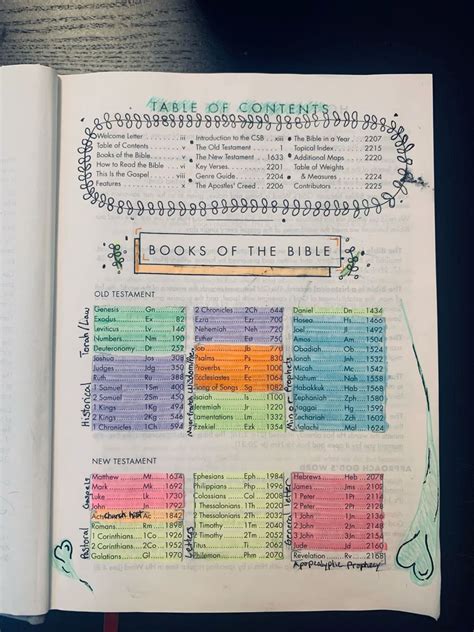 TABLE OF CONTENTS
Welcome Letter iii
Table of Contents v
Books of the Bible v
How to Read the Bible vi
This Is the Gospel viii
Features x
Introduction to the CSB xiii
The Old Testament 1
The New Testament 1633
Key Verses 2201
Genre Guide 2204
The Apostles' Creed 2206
The Bible in a Year 2207
Topical Index 2215
Additional Maps 2220
Table of Weights
& Measures 2224
Contributors 2225
BOOKS OF THE BIBLE
OLD TESTAMENT
Torah/Law
Historical
Genesis Gn 2
Exodus Ex 82
Leviticus Lv 146
Numbers Nm 190
Deuteronomy Dt 252
Joshua Jos 308
Judges Jdg 350
Ruth Ru 388
1 Samuel 1Sm 400
2 Samuel 2Sm 450
1 Kings 1Kg 494
2 Kings 2Kg 546
1 Chronicles 1Ch 594
2 Chronicles 2Ch 644
Ezra Ezr 700
Nehemiah Neh 722
Esther Est 750
Job Jb 770
Psalms Ps 830
Proverbs Pr 1000
Ecclesiastes Ec 1064
Song of Songs Sg 1082
Isaiah Is 1100
Jeremiah Jr 1220
Lamentations Lm 1332
Ezekiel Ezk 1354
Minor Prophets
Daniel Dn 1434
Hosea Hs 1466
Joel Jl 1492
Amos Am 1504
Obadiah Ob 1524
Jonah Jnh 1532
Micah Mc 1542
Nahum Nah 1558
Habakkuk Hab 1568
Zephaniah Zph 1580
Haggai Hg 1592
Zechariah Zch 1602
Malachi Mal 1624
NEW TESTAMENT
Gospels
Pastoral
Matthew Mt 1634
Mark Mk 1692
Luke Lk 1730
John Jn 1792
Acts Church Hist Ac 1842
Romans Rm 1898
1 Corinthians 1Co 1926
2 Corinthians 2Co 1952
Galatians Gl 1970
Letters
Ephesians Eph 1984
Philippians Php 1996
Colossians Col 2008
1 Thessalonians 1Th 2020
2 Thessalonians 2Th 2032
1 Timothy 1Tm 2040
2 Timothy 2Tm 2052
Titus Ti 2062
Philemon Phm 2070
General Letter
Hebrews Heb 2078
James Jms 2104
1 Peter 1Pt 2116
2 Peter 2Pt 2128
1 John 1Jn 2138
2 John 2Jn 2150
3 John 3Jn 2156
Jude Jd 2160
Revelation Rv 2168
Apopcalyptic Prophecy